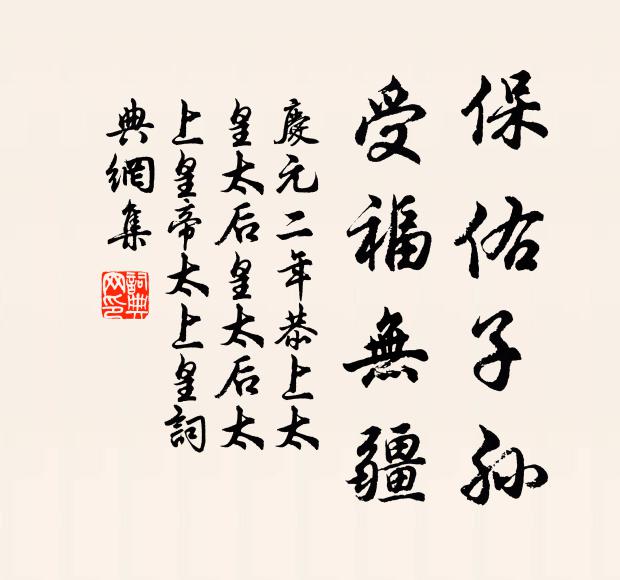 保佑子孙
受福無疆
慶元二年恭上太
皇太后皇太后太
上皇帝太上皇詞
典網集
詞典網印